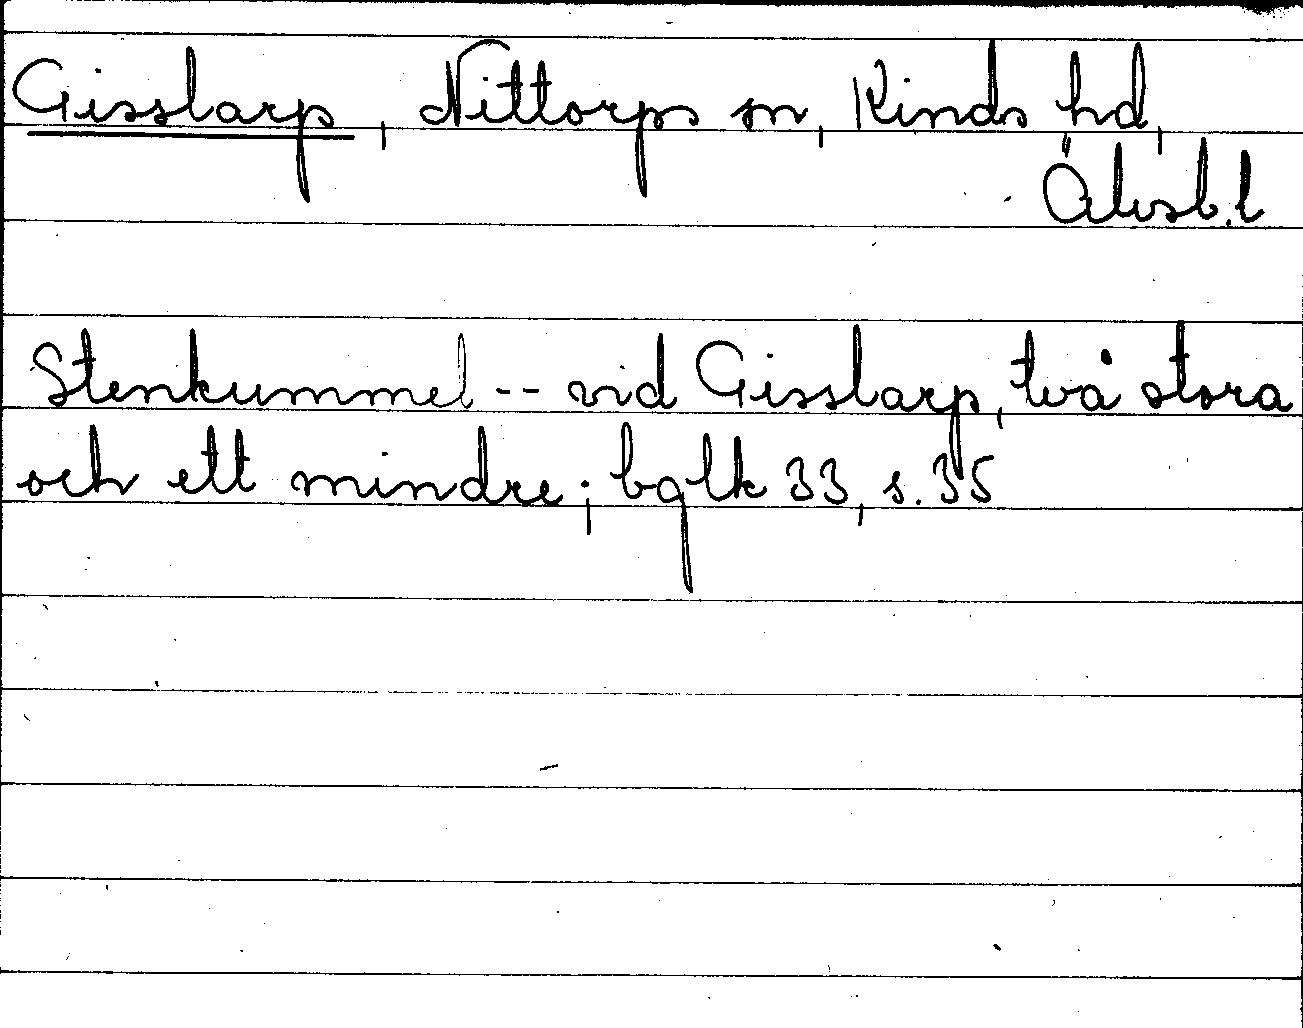 Gisslarp, Nittorps sn, Kinds hd,
Älvsb.l
Stenkummel -- vid Gisslarp, två stora
och ett mindre; bglk 33, s. 35